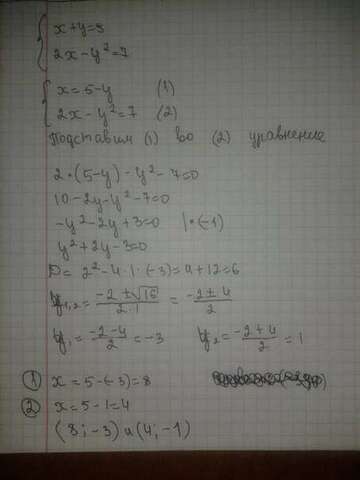 x+y=5
2x-y²=7
x=5-y (1)
2x-y²=7 (2)
Подставим (1) во (2) уравнение
2·(5-y)-y²-7=0
10-2y-y²-7=0
-y²-2y+3=0 |·(-1)
y²+2y-3=0
D=2²-4·1·(-3)=4+12=16
y₁,₂=(-2±√16)/(2·1)=(-2±4)/2
y₁=(-2-4)/2=-3 y₂=(-2+4)/2=1
① x=5-(-3)=8
② x=5-1=4
(8;-3) и (4;-1)